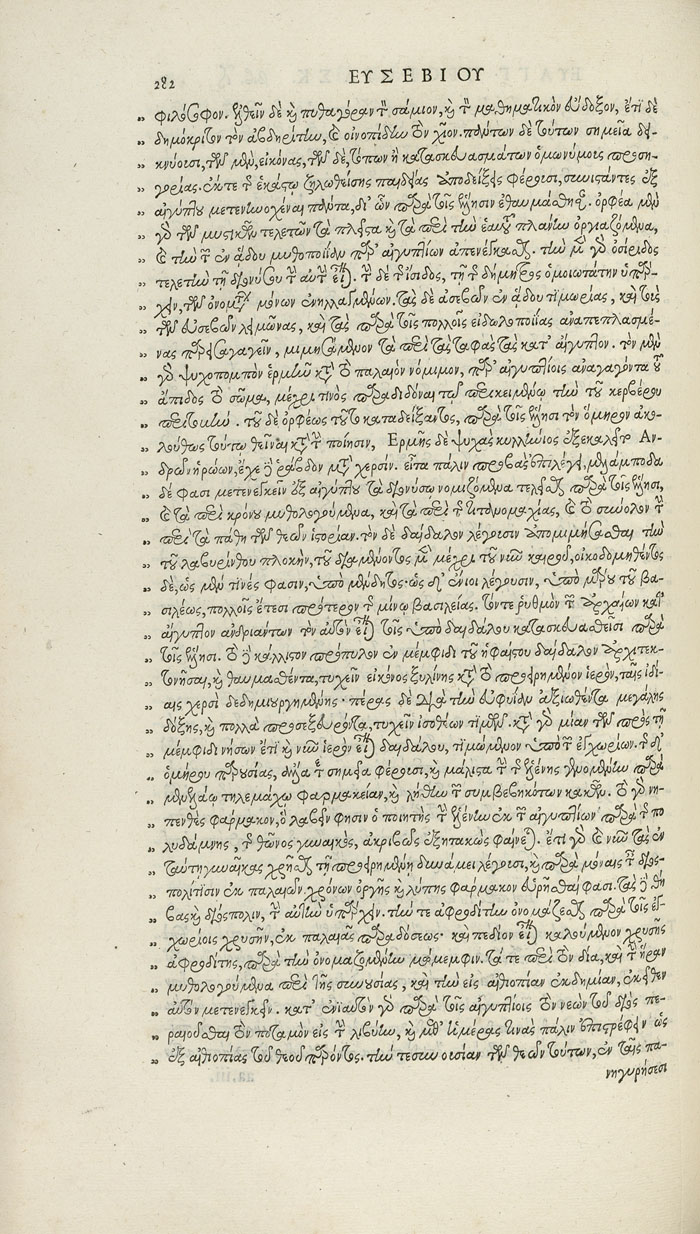 282 ΕΥΣΕΒΙΟΥ
„ φιλόσοφον. ἐλθεῖν δὲ καὶ πυθαγόραν τὸν σάμιον, καὶ τὸν μαθηματικὸν εὔδοξον, ἔτι δὲ
„ δημόκριτον τὸν ἀβδηρίτην, καὶ οἰνοπίδην τὸν χῖον. πάντων δὲ τούτων σημεῖα δει-
„ κνύουσι, τῶν μὲν, εἰκόνας, τῶν δὲ, τόπων ἢ κατασκευασμάτων ὁμωνύμους προση-
„ γορίας. ἔκ τε τῆς ἑκάστῳ ζηλωθείσης παιδείας ἀποδείξεις φέρουσι, συνιστάντες ἐξ
„ αἰγύπτου μετενηνοχέναι πάντα, δι' ὧν παρὰ τοῖς ἕλλησιν ἐθαυμάσθησαν. ὀρφέα μὲν
„ γὰρ τῶν μυστικῶν τελετῶν τὰ πλεῖστα καὶ τὰ περὶ τὴν ἑαυτοῦ πλάνην ὀργιαζόμενα,
„ καὶ τὴν τῶν ἐν ᾅδου μυθοποιΐαν παρ' αἰγυπτίων ἀπενέγκασθαι. τὴν μὲν γὰρ ὀσίριδος
„ τελετὴν τῇ διονύσου τὴν αὐτὴν εἶναι. τὴν δὲ τῆς ἴσιδος, τῇ τῆς δήμητρος ὁμοιοτάτην ὑπάρ-
„ χειν, τῶν ὀνομάτων μόνων ἐνηλλαγμένων. τὰς δὲ ἀσεβῶν ἐν ᾅδου τιμωρίας, καὶ τοὺς
„ τῶν εὐσεβῶν λειμῶνας, καὶ τὰς παρὰ τοῖς πολλοῖς εἰδωλοποιΐας ἀναπεπλασμέ-
„ νας παρεισαγαγεῖν, μιμησάμενον τὰ περὶ τὰς ταφὰς τὰς κατ' αἴγυπτον. τὸν μὲν
„ γὰρ ψυχοπομπὸν ἑρμῆν κατὰ τὸ παλαιὸν νόμιμον, παρ' αἰγυπτίοις ἀναγαγόντα τοῦ
„ ἄπιδος τὸ σῶμα, μέχρι τινὸς παραδιδόναι τῷ περικειμένῳ τὴν τοῦ κερβέρου
„ προτομήν. τοῦ δὲ ὀρφέως τοῦτο καταδείξαντος, παρὰ τοῖς ἕλλησι τὸν ὅμηρον ἀκο-
„ λούθως τούτῳ θεῖναι κατὰ τὴν ποίησιν, Ερμῆς δὲ ψυχὰς κυλλήνιος ἐξεκαλεῖτο Αν-
„ δρῶν ἡρώων, ἔχε δὲ ῥάβδον μετὰ χερσίν. εἶτα πάλιν προβὰς ἐπιλέγει, μελάμποδα
„ δέ φασι μετενεγκεῖν ἐξ αἰγύπτου τὰ διονύσῳ νομιζόμενα τελεῖσθαι παρὰ τοῖς ἕλλησι,
„ καὶ τὰ περὶ κρόνου μυθολογούμενα, καὶ τὰ περὶ τῆς τιτανομαχίας, καὶ τὸ σύνολον τὴν
„ περὶ τὰ πάθη τῶν θεῶν ἱστορίαν. τὸν δὲ δαίδαλον λέγουσιν ἀπομιμήσασθαι τὴν
„ τοῦ λαβυρίνθου πλοκὴν, τοῦ διαμένοντος μὲν μέχρι τοῦ νῦν καιροῦ, οἰκοδομηθέντος
„ δὲ, ὡς μέν τινές φασιν, ὑπὸ μένδητος· ὡς δ' ἔνιοι λέγουσιν, ὑπὸ μάρου τοῦ βα-
„ σιλέως, πολλοῖς ἔτεσι πρότερον τῆς μίνω βασιλείας. τόν τε ῥυθμὸν τῶν ἀρχαίων κατ'
„ αἴγυπτον ἀνδριάντων τὸν αὐτὸν εἶναι τοῖς ὑπὸ δαιδάλου κατασκευασθεῖσι παρὰ
„ τοῖς ἕλλησι. τὸ δὲ κάλλιστον πρόπυλον ἐν μέμφιδι τοῦ ἡφαίστου δαίδαλον ἀρχιτεκ-
„ τονῆσαι, καὶ θαυμασθέντα, τυχεῖν εἰκόνος ξυλίνης κατὰ τὸ προειρημένον ἱερὸν, ταῖς ἰδί-
„ αις χερσὶ δεδημιουργημένης· πέρας δὲ διὰ τὴν εὐφυΐαν ἀξιωθέντα μεγάλης
„ δόξης, καὶ πολλὰ προσεξευρόντα, τυχεῖν ἰσοθέων τιμῶν. κατὰ γὰρ μίαν τῶν πρὸς τῇ
„ μέμφιδι νήσων ἔτι καὶ νῦν ἱερὸν εἶναι δαιδάλου, τιμώμενον ὑπὸ τῶν ἐγχωρίων. τῆς δ'
„ ὁμήρου παρουσίας, ἄλλα τε σημεῖα φέρουσι, καὶ μάλιστα τὴν τῆς ἑλένης γενομένην παρὰ
„ μενελάῳ τηλεμάχῳ φαρμακείαν, καὶ λήθην τῶν συμβεβηκότων κακῶν. τὸ γὰρ νη-
„ πενθὲς φάρμακον, ὃ λαβεῖν φησιν ὁ ποιητὴς τὴν ἑλένην ἐκ τῶν αἰγυπτίων παρὰ τῆς πο
„ λυδάμνης, τῆς θῶνος γυναικὸς, ἀκριβῶς ἐξητακὼς φαίνεται. ἔτι γὰρ καὶ νῦν τὰς ἐν
„ ταύτῃ γυναῖκας χρῆσθαι τῇ προειρημένῃ δυνάμει λέγουσι, καὶ παρὰ μόναις ταῖς διοσ-
„ πολίτισιν ἐκ παλαιῶν χρόνων ὀργῆς καὶ λύπης φάρμακον εὑρῆσθαί φασι. τὰς δὲ θή
„ βας καὶ διόσπολιν, τὴν αὐτὴν ὑπάρχειν. τήν τε ἀφροδίτην ὀνομάζεσθαι παρὰ τοῖς ἐγ-
„ χωρίοις χρυσῆν, ἐκ παλαιᾶς παραδόσεως· καὶ πεδίον εἶναι καλούμενον χρυσῆς
„ ἀφροδίτης, περὶ τὴν ὀνομαζομένην μώμεμφιν. τά τε περὶ τὸν δία, καὶ τὴν ἥραν
„ μυθολογούμενα περὶ τῆς συνουσίας, καὶ τὴν εἰς αἰθιοπίαν ἐκδημίαν, ἐκεῖθεν
„ αὐτὸν μετενεγκεῖν. κατ' ἐνιαυτὸν γὰρ παρὰ τοῖς αἰγυπτίοις τὸν νεὼν τοῦ διὸς πε-
„ ραιοῦσθαι τὸν ποταμὸν εἰς τὴν λιβύην, καὶ μεθ' ἡμέρας τινὰς πάλιν ἐπιστρέφειν ὡς
„ ἐξ αἰθιοπίας τοῦ θεοῦ παρόντος. τήν τε συνουσίαν τῶν θεῶν τούτων, ἐν ταῖς πα-
νηγυρήσεσι